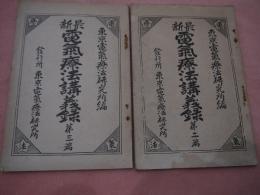 最新
電氣療法講義録
第二篇
東京電氣療法研究所編
發行所 東京電氣療法研究所
最新
電氣療法講義録
第三篇
東京電氣療法研究所編
發行所 東京電氣療法研究所